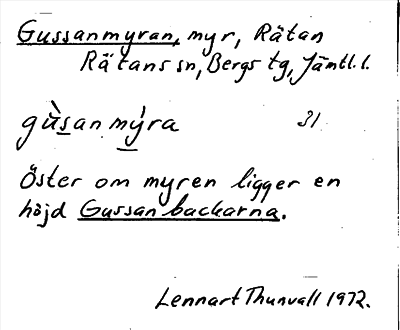 Gussanmyran, myr, Rätan
Rätans sn, Bergs tg, Jämtl. l.
gùsan mýra 31
Öster om myren ligger en
höjd Gussanbackarna.
Lennart Thunvall 1972.